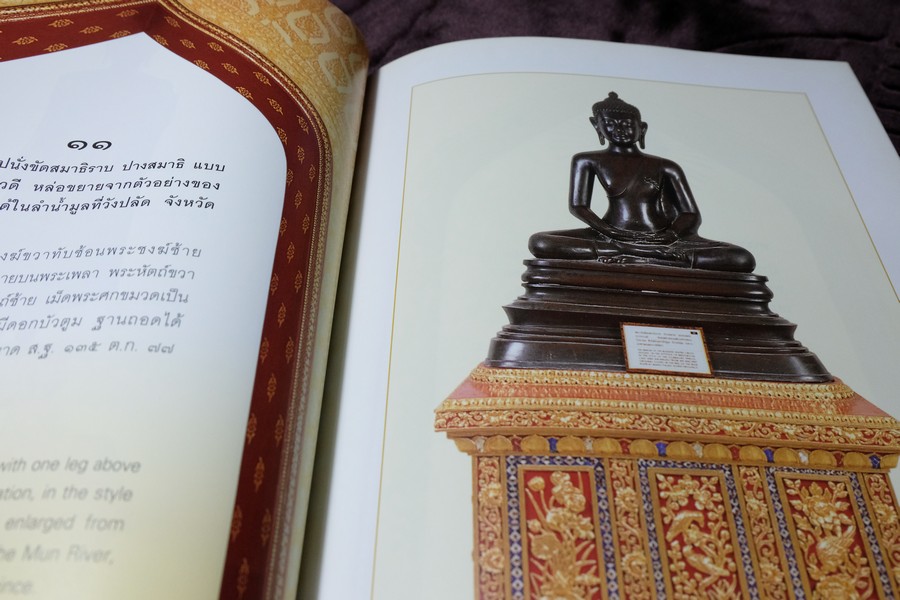 ๑๑
นั่งขัดสมาธิราบ ปางสมาธิ แบบ
วดี หล่อขยายจากตัวอย่างของ
ได้ในลำน้ำมูลที่วังปลัด จังหวัด
ขวาทับซ้อนพระชงฆ์ซ้าย
ายบนพระเพลา พระหัตถ์ขวา
ถ์ซ้าย เม็ดพระศกขมวดเป็น
มีดอกบัวตูม ฐานถอดได้
าด ส.ฐ. ๑๓๕ ต.ก. ๗๗
with one leg above
ation, in the style
enlarged from
he Mun River,
ince.